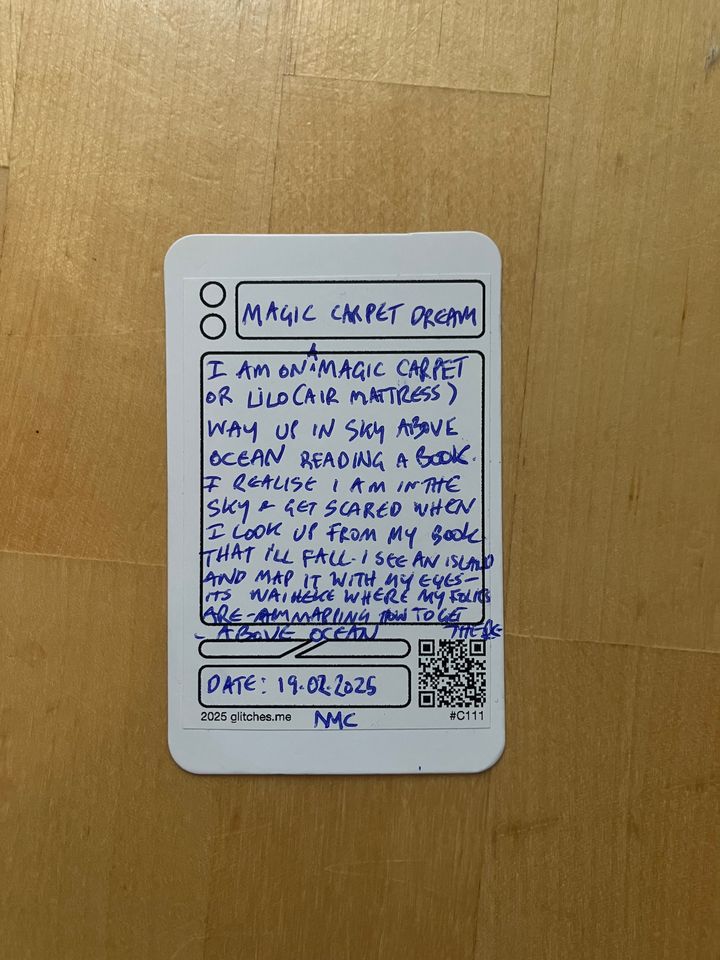 MAGIC CARPET DREAM
I AM ON A MAGIC CARPET
OR LILO (AIR MATTRESS)
WAY UP IN SKY ABOVE
OCEAN READING A BOOK.
I REALISE I AM IN THE
SKY & GET SCARED WHEN
I LOOK UP FROM MY BOOK
THAT I'LL FALL. I SEE AN ISLAND
AND MAP IT WITH MY EYES -
ITS WAIHEKE WHERE MY FOLKS
ARE - AM MAPPING HOW TO GET
THERE
- ABOVE OCEAN
DATE: 19.02.2025
2025 glitches.me
NMC
#C111